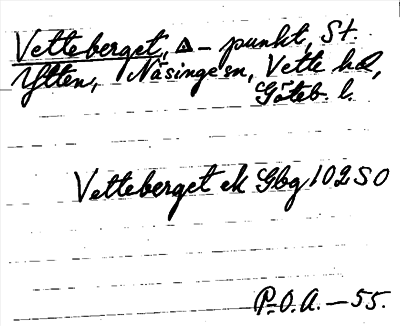 Vetteberget, Δ-punkt, St.
Ytten, Näsinge sn, Vette hd,
Göteb. l.
Vetteberget ek Gbg 102 SO
P.O.A. — 55.